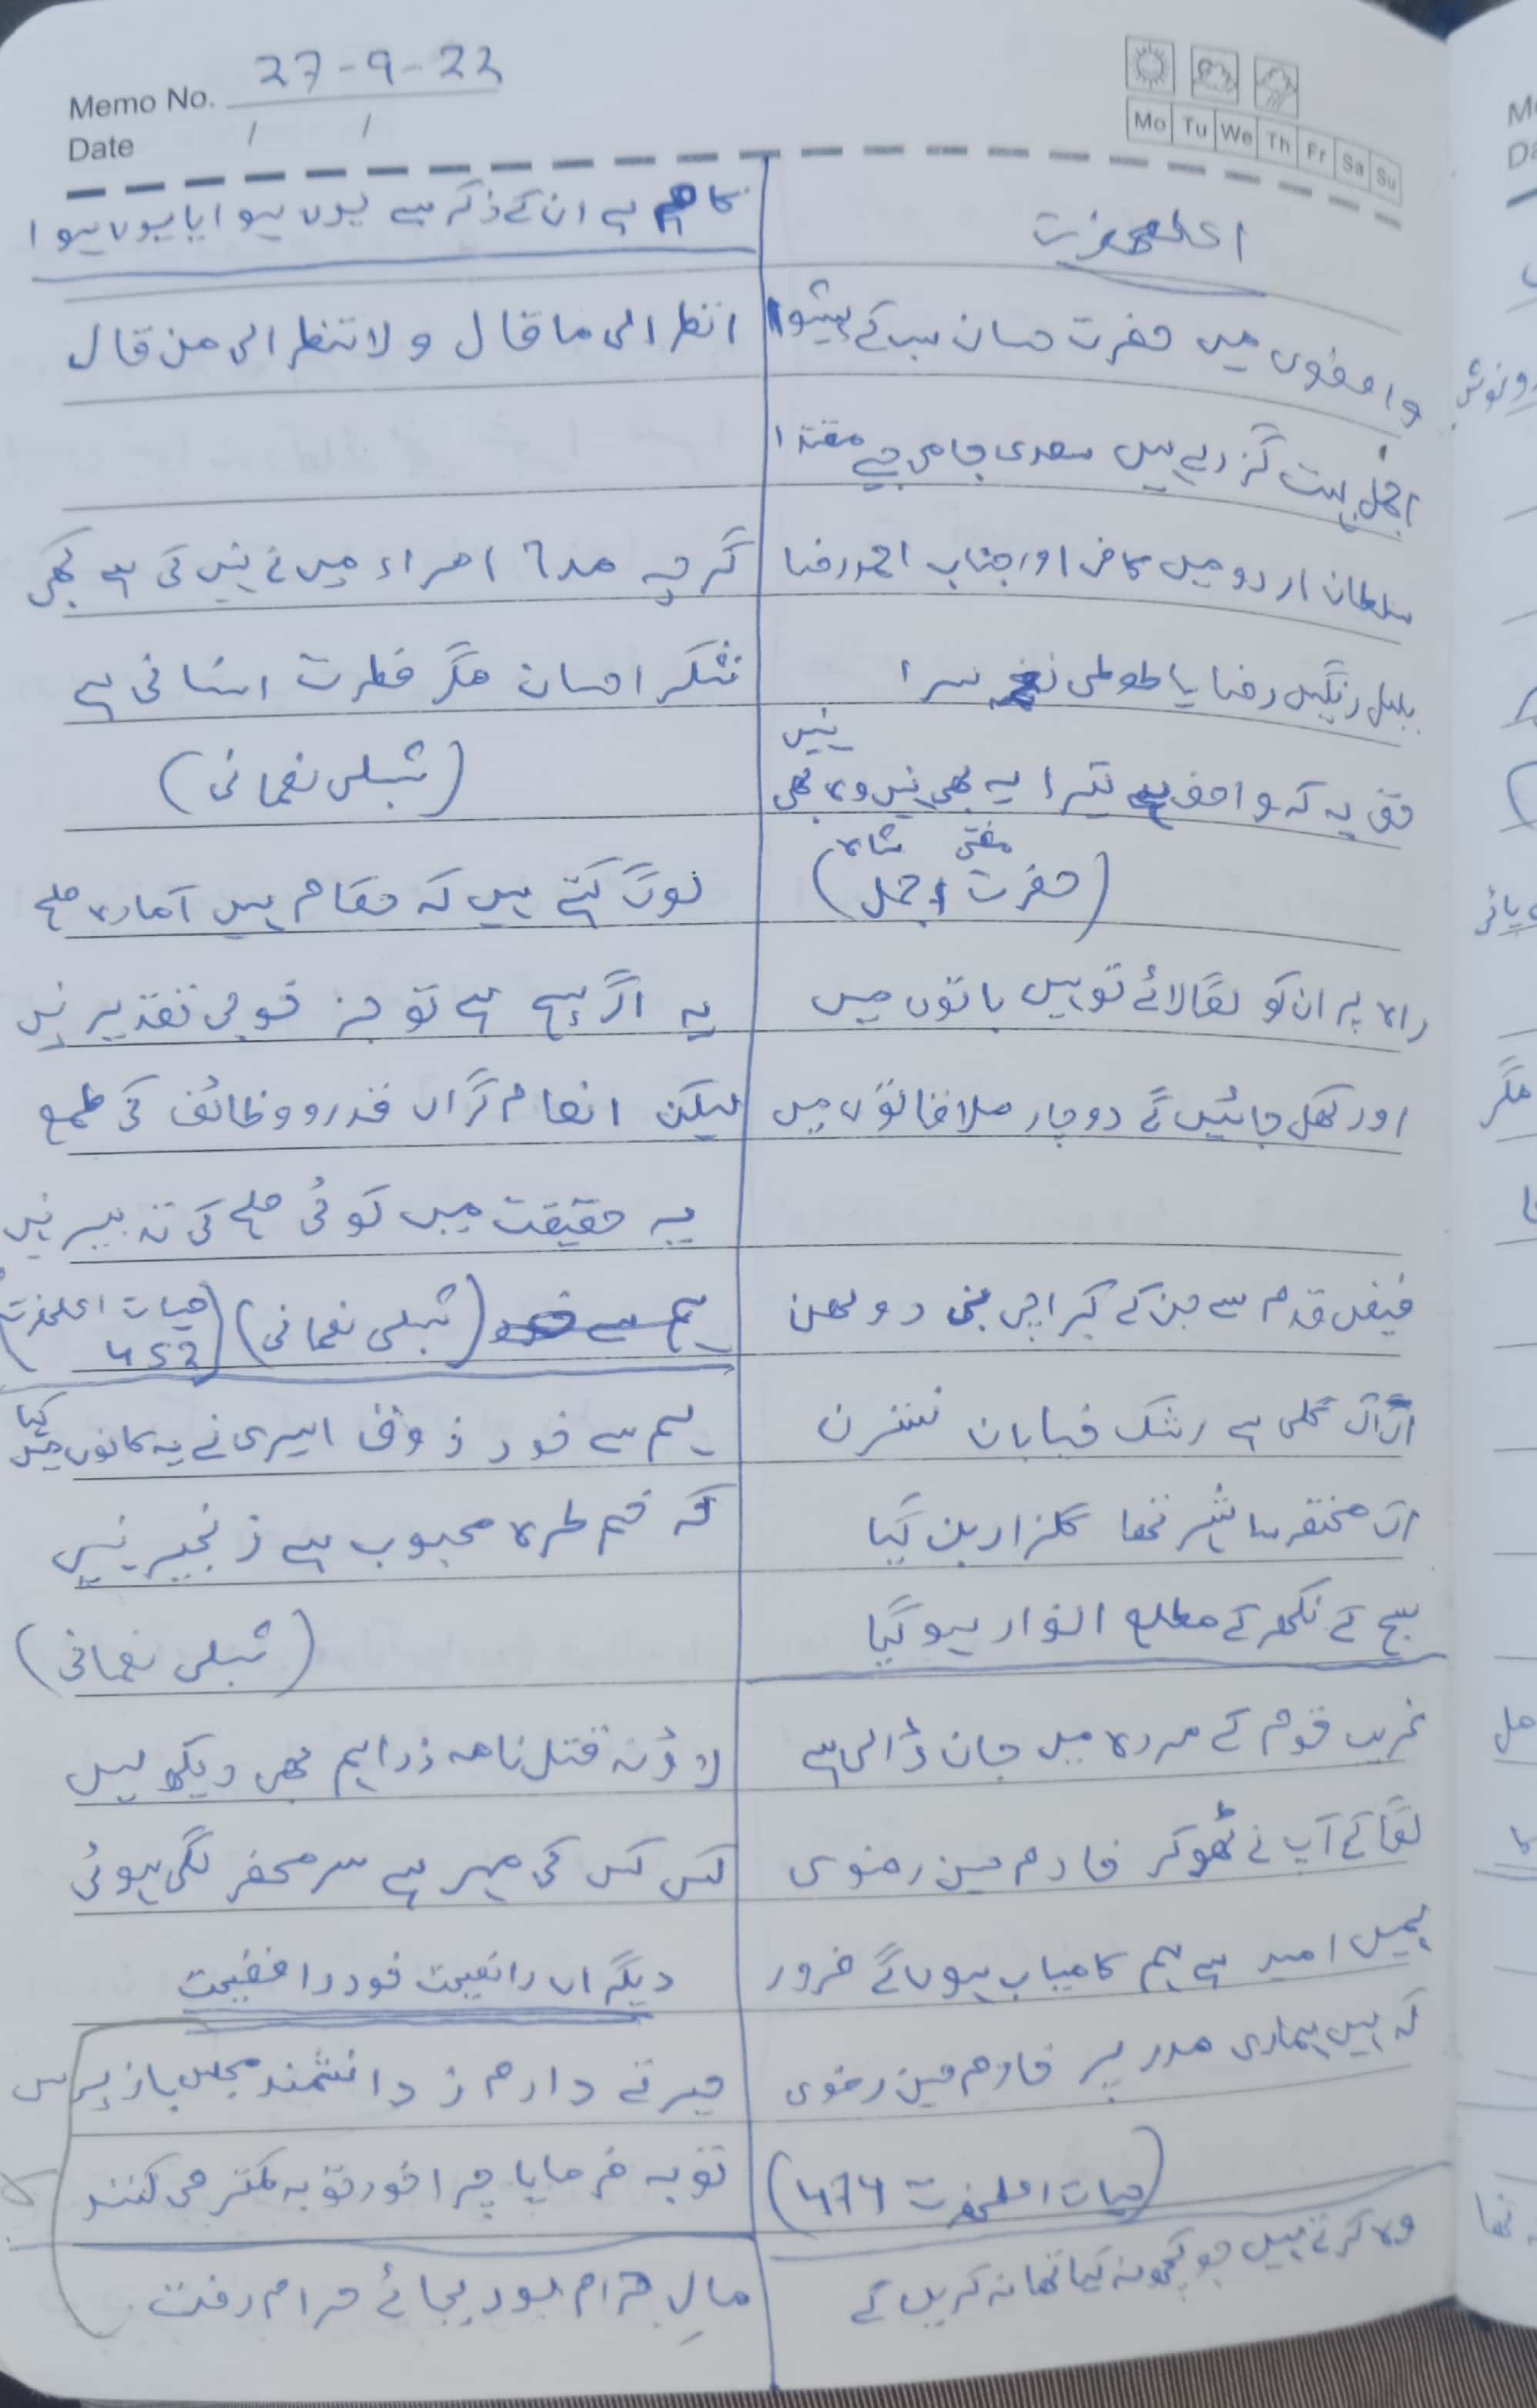 Memo No. 27-9-22
Date / /
Mo Tu We Th Fr Sa Su
اعلحضرت
واصفوں میں حضرت حسان سب کے پیشوا
اجمل بہت گزرے ہیں سعدی جامی جیسے مقتدا
سلطان اردو میں کافی اور جناب احمد رضا
بلبل رنگیں رضا یا طوطی نغمہ سرا
حق یہ کہ واصف ہے تیرا یہ بھی نہیں وہ بھی نہیں
(حضرت مفتی اجمل شاہ)
راہ پر ان کو لگا لائے تو ہیں باتوں میں
اور کھل جائیں گے دو چار ملاقاتوں میں
فیض قدم سے جن کے کراچی بنی دولھن
اک اک گلی ہے رشک خیابان نسترن
اک مختصر سا شہر تھا گلزار بن گیا
سج کے نکھر کے مطلع انوار ہو گیا
غریب قوم کے مردہ میں جان ڈالی ہے
لگا کے آپ نے ٹھوکر خادم حسین رضوی
ہمیں امید ہے ہم کامیاب ہوں گے ضرور
کہ ہیں ہماری مدد پر خادم حسین رضوی
(حیات اعلحضرت 474)
وہ کرتے ہیں جو کچھ نہ کیا تھا نہ کریں گے
کام ہے ان کے ذکر سے یوں ہوا یا یوں ہوا
انظر الی ما قال ولا تنظر الی من قال
گرچہ مدح امراء میں نے نہیں کی ہے کبھی
شکر احسان مگر فطرت انسانی ہے
(شبلی نعمانی)
لوگ کہتے ہیں کہ حکام ہیں آمادہ صلح
یہ اگر سچ ہے تو جز خوبی تقدیر نہیں
لیکن انعام گراں قدر و وظائف کی طمع
یہ حقیقت میں کوئی صلح کی تدبیر نہیں
ہم سے خود (شبلی نعمانی) (حیات اعلحضرت 452)
ہم سے خود ذوق اسیری نے یہ کانوں میں کہا
کہ خم طرہ محبوب ہے زنجیر نہیں
(شبلی نعمانی)
لاؤ نہ قتل نامہ ذرا ہم بھی دیکھ لیں
کس کس کی مہر ہے سر محضر لگی ہوئی
دیگراں را نصیحت خود را فضیحت
حیرتے دارم ز دانشمند مجلس باز پرس
توبہ فرمایا چرا خود توبہ کمتر می کنند
مالِ حرام بود بجائے حرام رفت